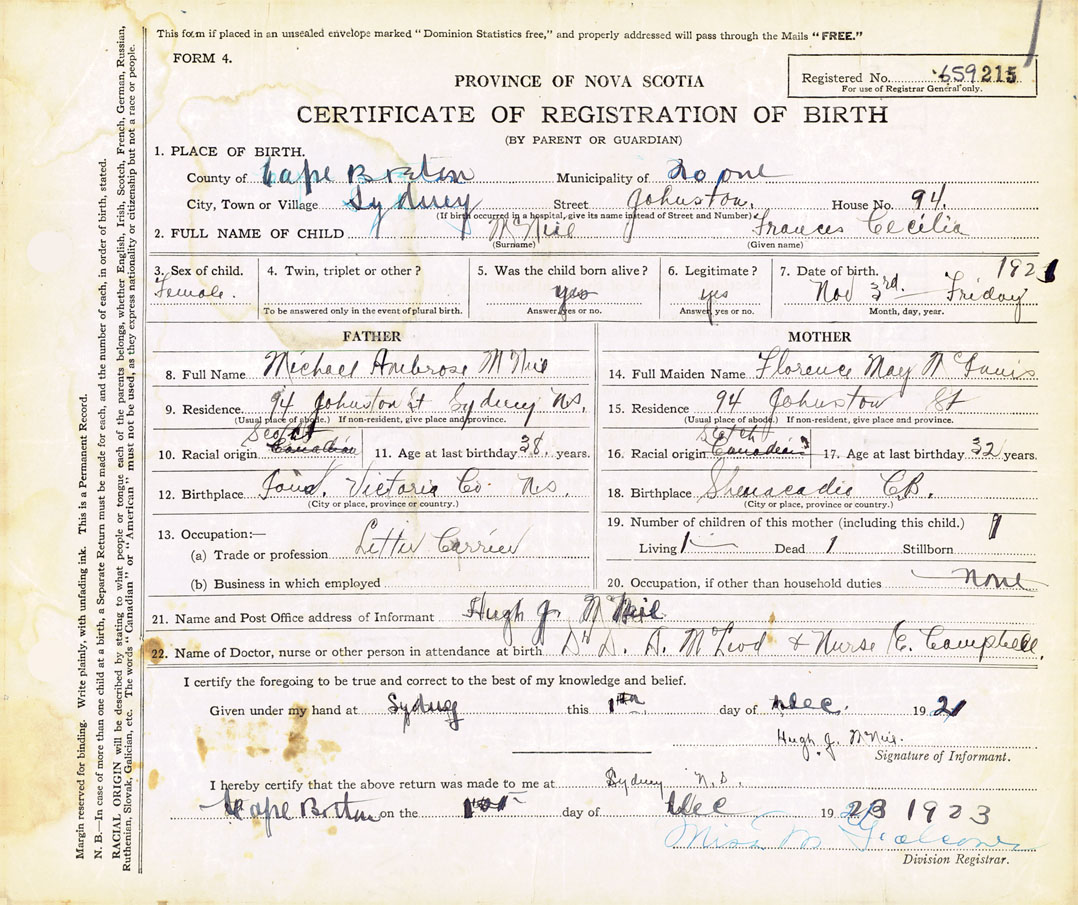 This form if placed in an unsealed envelope marked "Dominion Statistics free," and properly addressed will pass through the Mails "FREE."
FORM 4.
Registered No. 659215
For use of Registrar General only.
PROVINCE OF NOVA SCOTIA
CERTIFICATE OF REGISTRATION OF BIRTH
(BY PARENT OR GUARDIAN)
1. PLACE OF BIRTH.
County of Cape Breton Municipality of
City, Town or Village Sydney Street Johnston. House No. 94.
(If birth occurred in a hospital, give its name instead of Street and Number)
2. FULL NAME OF CHILD McNeil Frances Cecilia
(Surname) (Given name)
3. Sex of child. 4. Twin, triplet or other? 5. Was the child born alive? 6. Legitimate? 7. Date of birth. 1921
Female. yes yes Nov 3rd. Friday
To be answered only in the event of plural birth. Answer yes or no. Answer, yes or no. Month, day, year.
FATHER
8. Full Name Michael Ambrose McNeil
9. Residence. 94 Johnston St Sydney N.S.
(Usual place of abode.) If non-resident, give place and province.
Scotch
10. Racial origin Canadian 11. Age at last birthday 38. years.
12. Birthplace Iona. Victoria Co. N.S.
(City or place, province or country.)
13. Occupation:—
(a) Trade or profession Letter Carrier
(b) Business in which employed
MOTHER
14. Full Maiden Name Florence May
15. Residence 94 Johnston St
(Usual place of abode.) If non-resident, give place and province.
Scotch
16. Racial origin Canadian 17. Age at last birthday 32 years.
18. Birthplace Shenacadie C.B.
(City or place, province or country.)
19. Number of children of this mother (including this child.)
Living 1 Dead 1 Stillborn
20. Occupation, if other than household duties none
21. Name and Post Office address of Informant Hugh J. McNeil
22. Name of Doctor, nurse or other person in attendance at birth Dr D. A. McLeod & Nurse C. Campbell.
I certify the foregoing to be true and correct to the best of my knowledge and belief.
Given under my hand at Sydney this 1st day of Dec. 1921
Hugh J. McNeil.
Signature of Informant.
I hereby certify that the above return was made to me at Sydney N.S.
Cape Breton on the 1st day of Dec 1923 1923
Miss M
Division Registrar.
Margin reserved for binding. Write plainly, with unfading ink. This is a Permanent Record.
N. B.—In case of more than one child at a birth, a Separate Return must be made for each, and the number of each, in order of birth, stated.
RACIAL ORIGIN will be described by stating to what people or tongue each of the parents belongs, whether English, Irish, Scotch, French, German, Russian,
Ruthenian, Slovak, Galician, etc. The words "Canadian" or "American" must not be used, as they express nationality or citizenship but not a race or people.